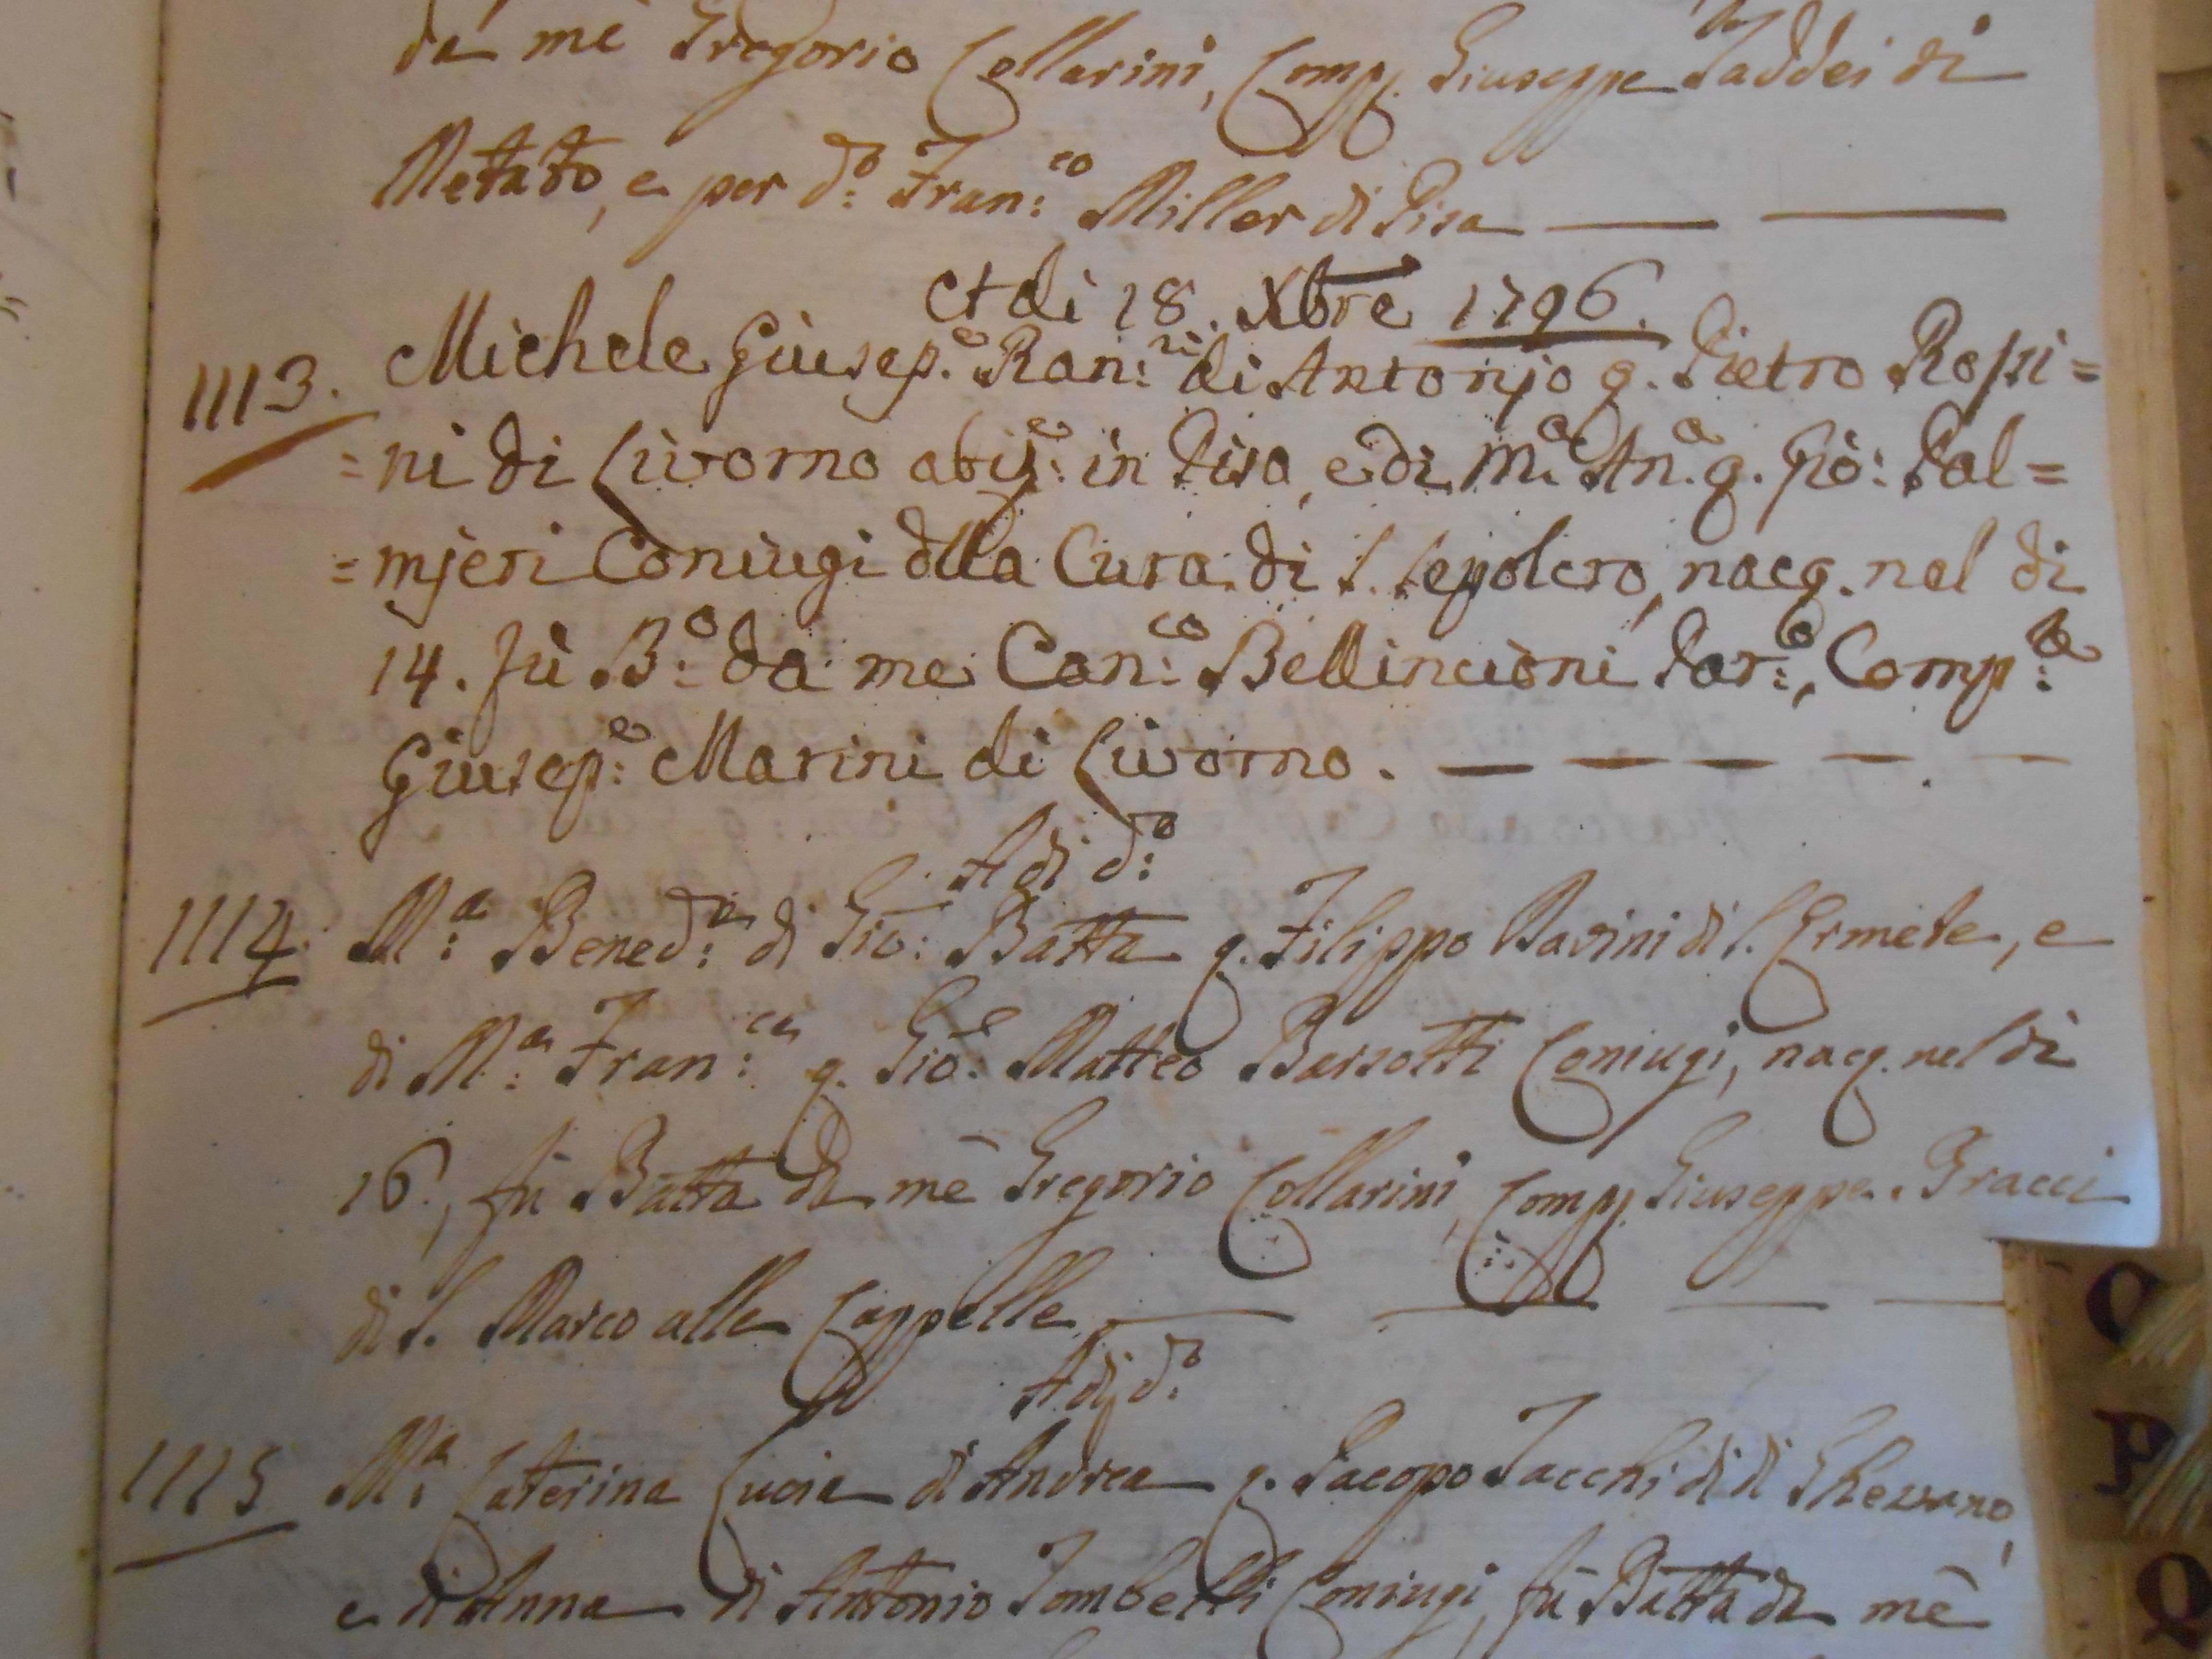 da mè Gregorio Collarini, Comp. Giuseppe Taddei di
Metato, e per d.º Fran:co Miller di Pisa
Adi 18. Xbre 1796.
1113. Michele Giusep.e Ran:ri di Antonjo q. Pietro Rossi=
=ni di Livorno abij:e in Pisa, e di M.a An.a q. Giò: Pal=
=mjeri Coniugi dlla Cura di S. Sepolcro, nacq. nel di
14. fù B:o da me Can:co Bellincioni Par:o, Comp:e
Giusep:e Marini di Livorno.
Adi d:o
1114. M:a Bened:a di Gio: Batta q. Filippo Bavini di S. Ermete, e
di M:a Fran:ca q. Gio: Matteo Barsotti Coniugi, nacq. nel di
16, fù Batta da mè Gregorio Collarini, Comp. Giuseppe Bracci
di S. Marco alle Cappelle
Adi d:o
1115 M:a Caterina Lucia di Andrea q. Jacopo Tacchi di di Ghezzano,
e di Anna di Antonio Tombelli Coniugi, fù Batta da mè
C
P
Q